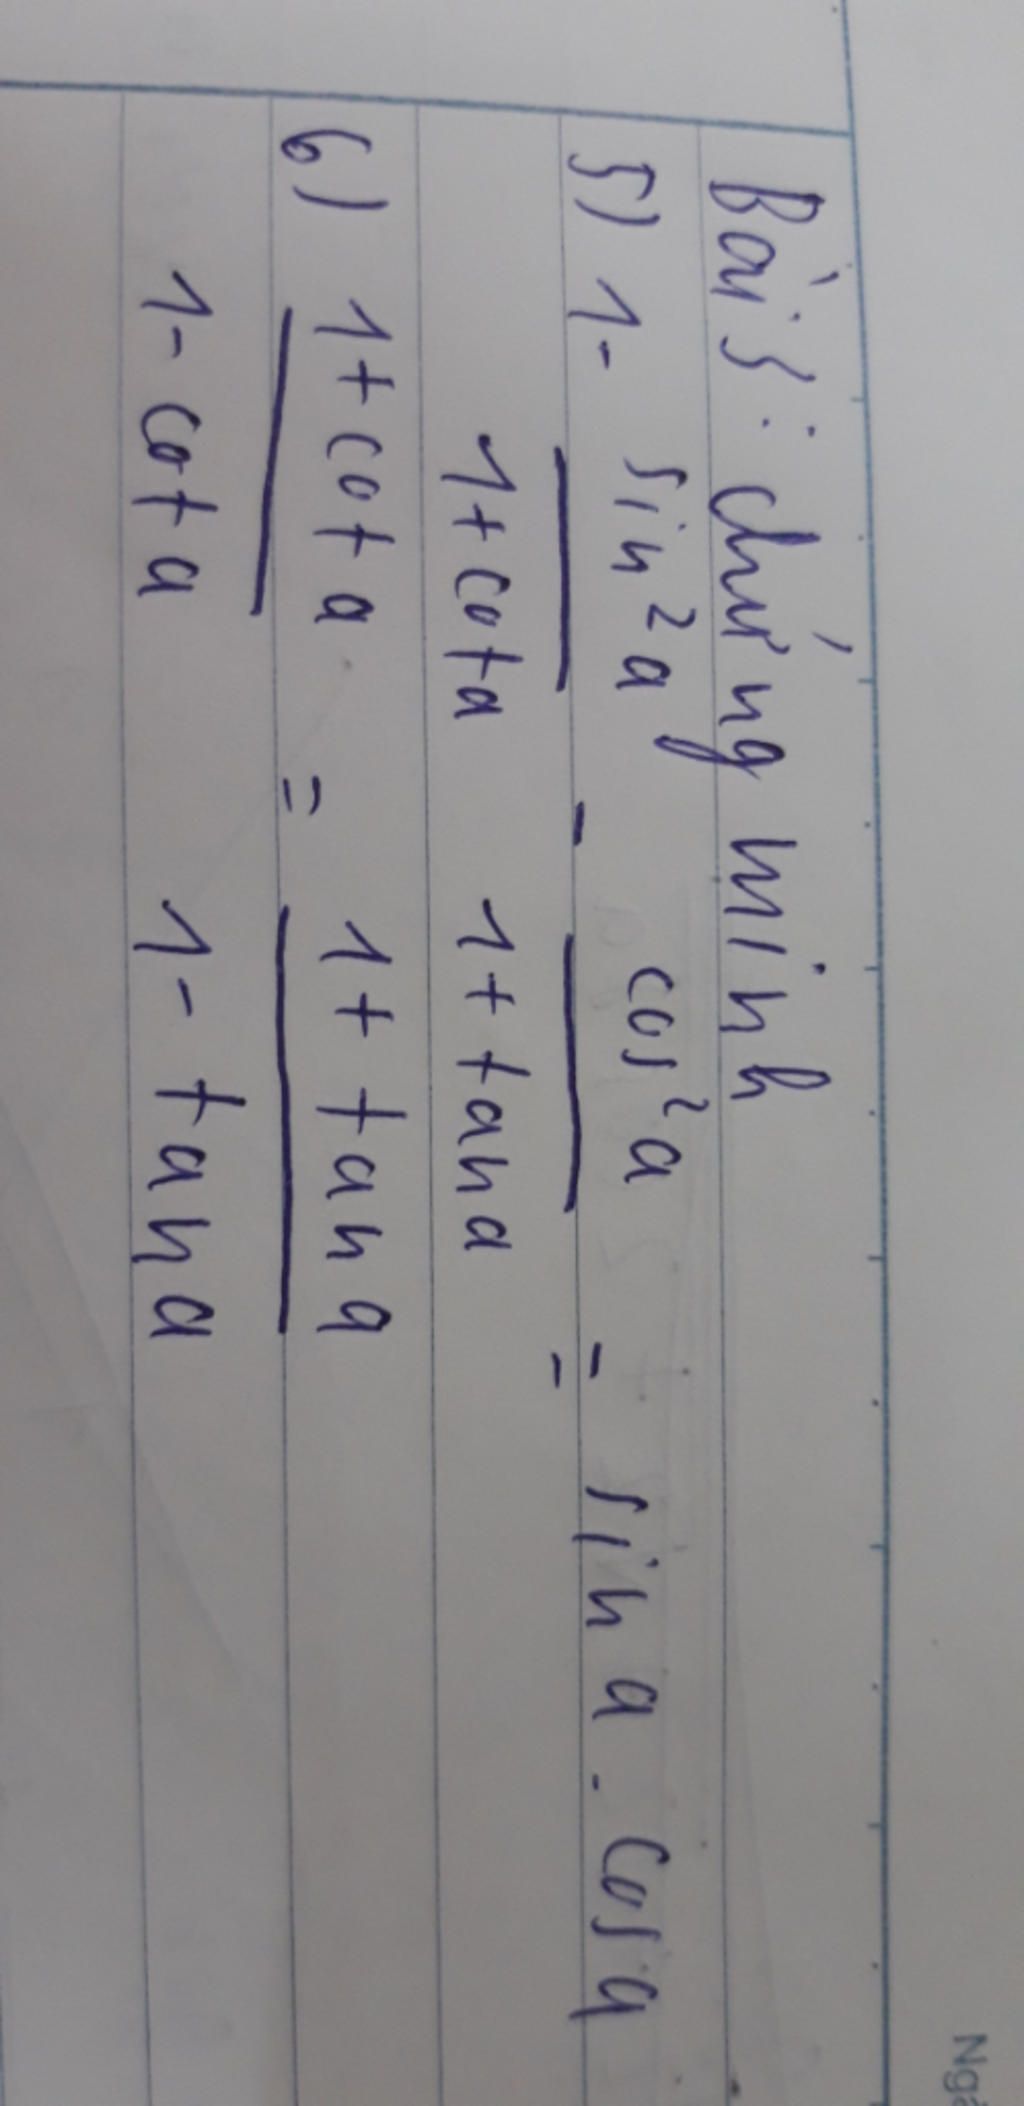 Bài 5: chứng minh
5) 1 - sin²a / 1 + cot a - cos²a / 1 + tan a = sin a . cos a
6) 1 + cot a / 1 - cot a = 1 + tan a / 1 - tan a